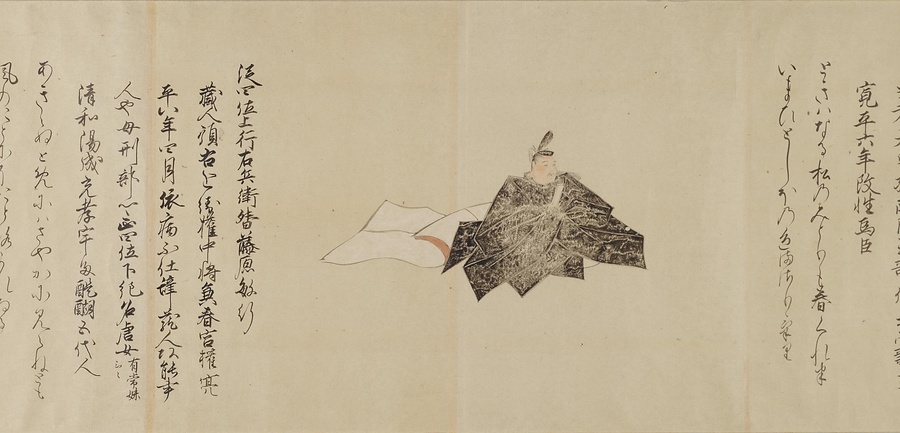 寛平六年改性為臣
ときはなる松のみとりも春くれは
いまひとしほの色まさりけり
従四位上行右兵衛督藤原敏行
蔵人頭右近衛権中将兼春宮権亮
平八年四月依病不仕辞蔵人能書
人也母刑部正四位下紀名虎女有常妹云々
清和陽成光孝宇多醍醐五代人
あききぬとめにはさやかにみえねとも
風のおとにそおとろかれぬる